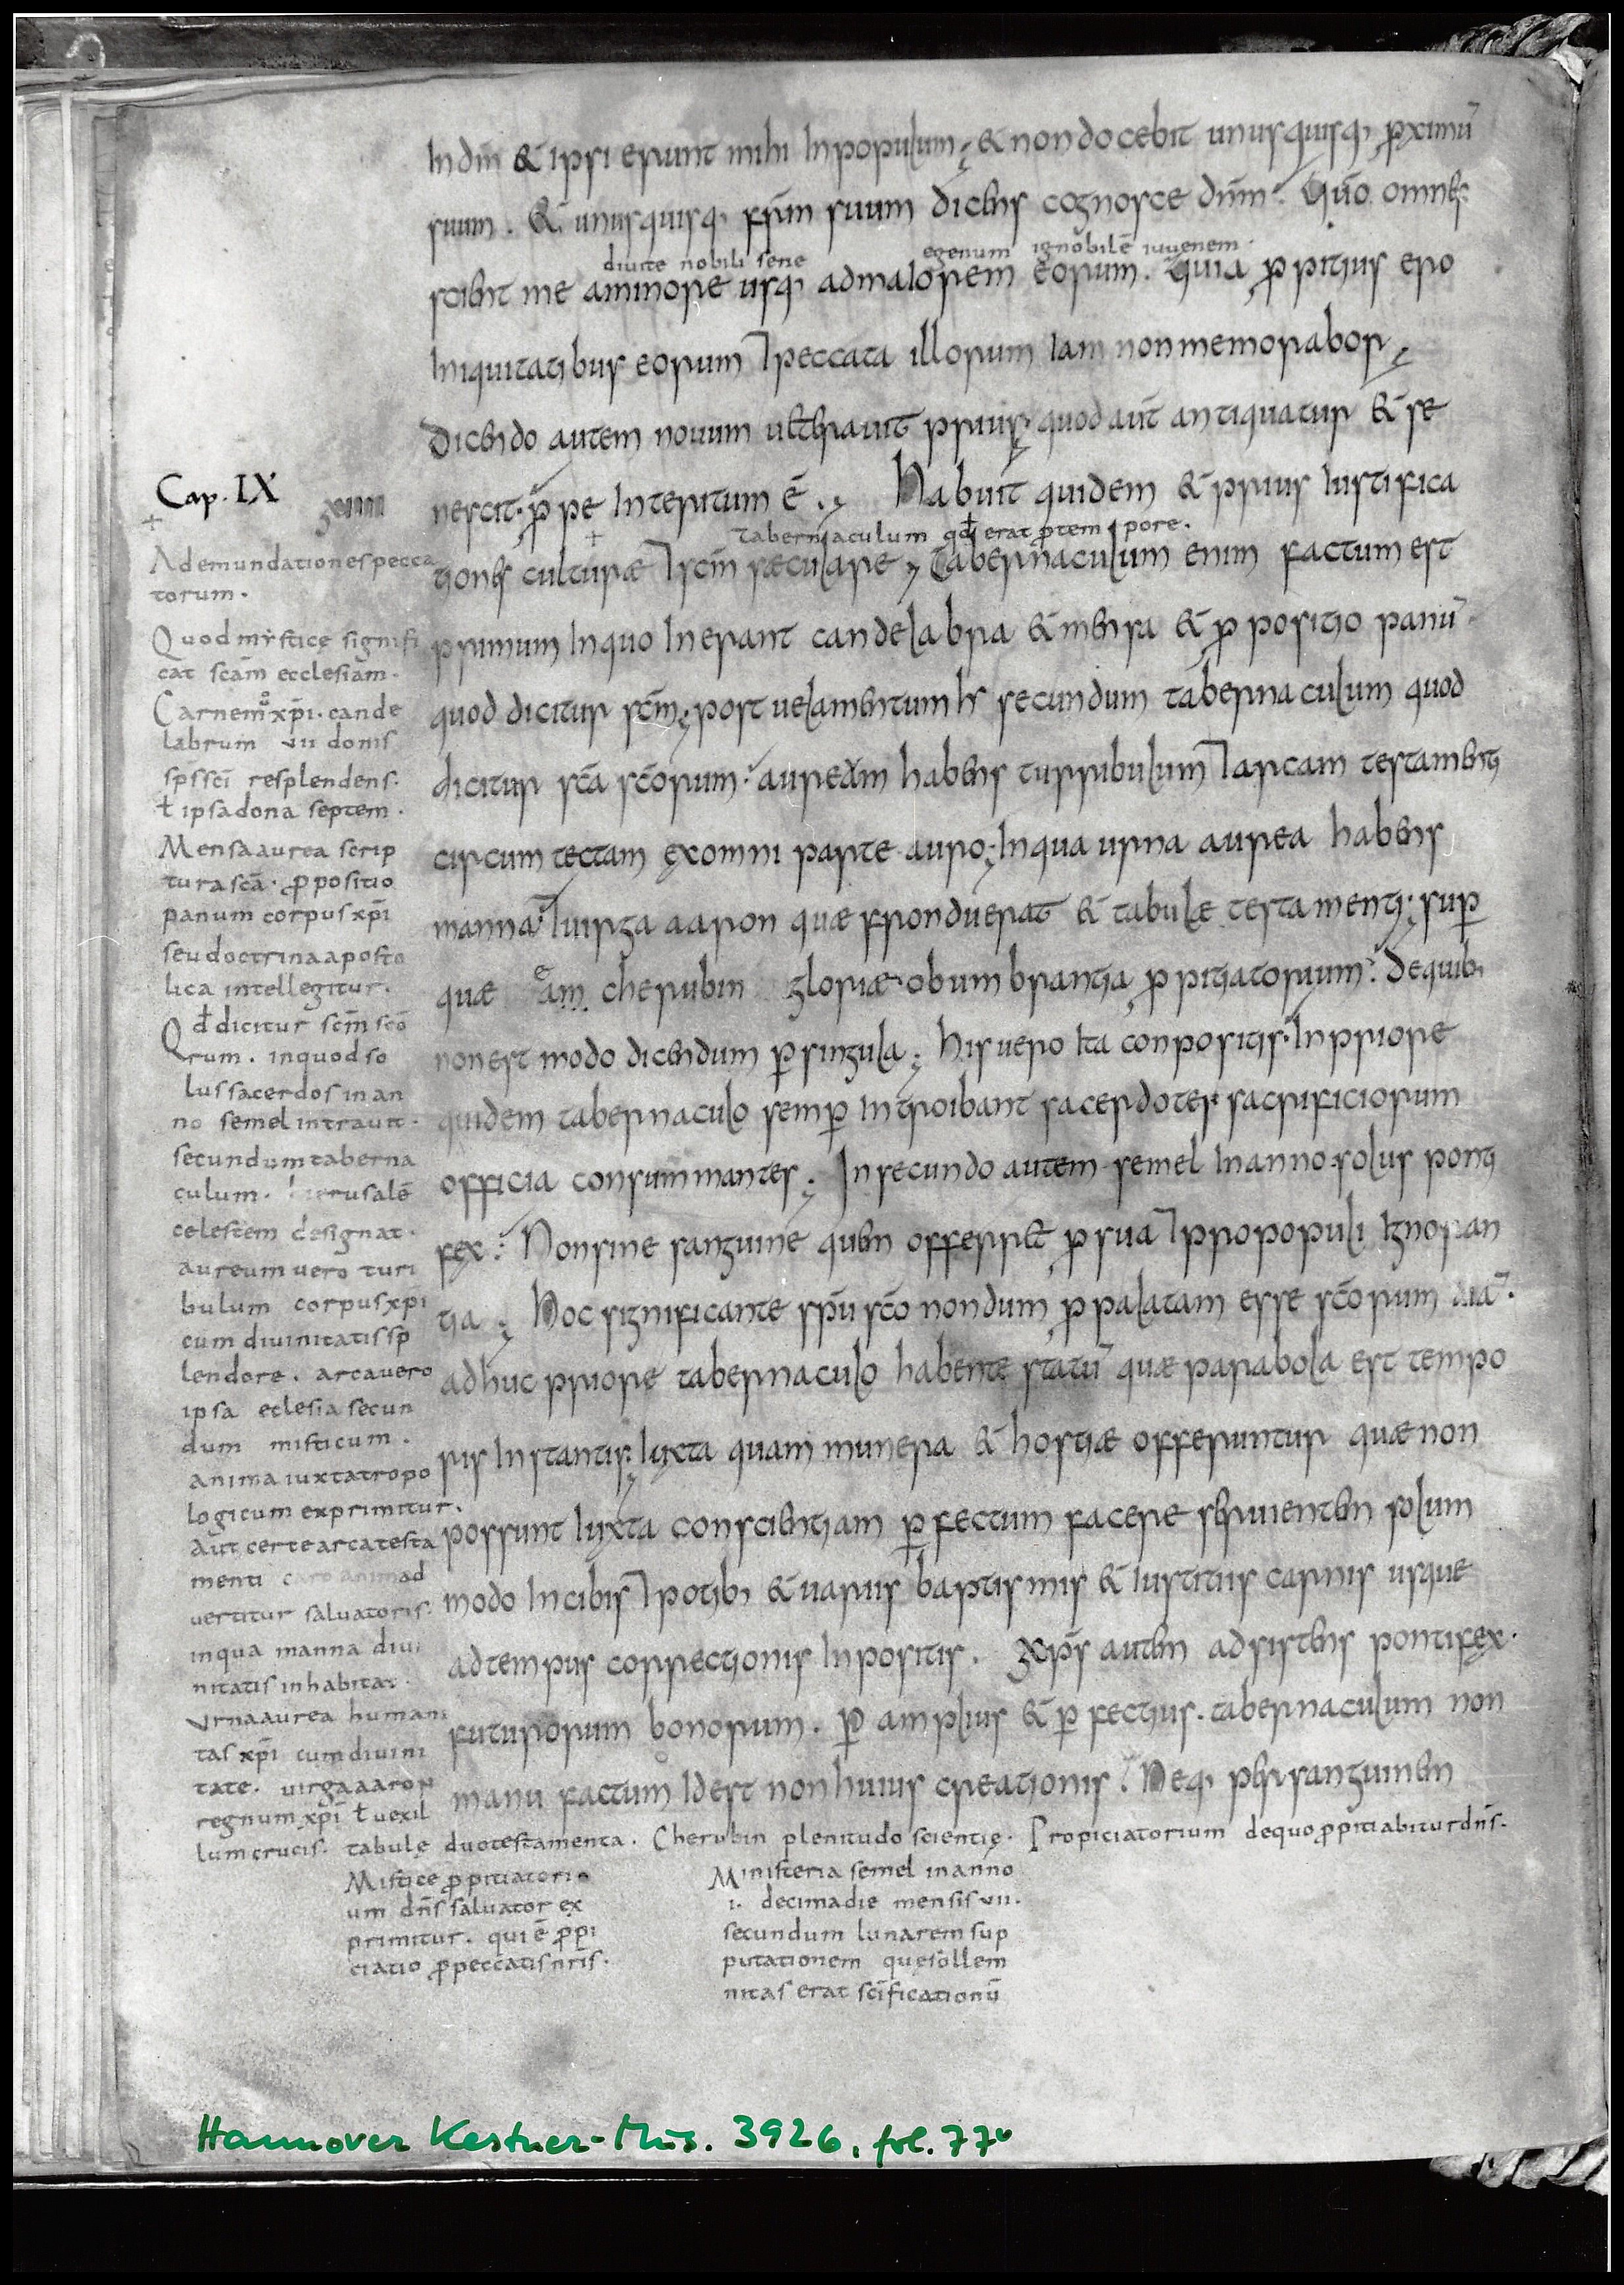 In dm̄ & ipsi erunt mihi In populum; & non docebit unusquisq; ꝓximū
suum. & unusquisq; fr̄m suum dicens cognosce dn̄m. Qūo omnes
diuite nobili sene egenum ignobilē iuuenem.
scient me aminore usq; admaiorem eorum. Quia ꝓpitius ero
Iniquitatibus eorum ⁊peccata illorum Iam nonmemorabor;
Dicendo autem nouum ueterauit prius; quod aut̄ antiquatur & se
Cap. IX
nescit. ꝓpe Interitum ē.; Habuit quidem & prius Iustifica
tabernaculum qđ erat ꝓtempore.
tiones culturæ ⁊sc̄m sæculare; Tabernaculum enim factum est
primum Inquo Inerant candelabra & mensa & ꝓpositio panū
quod dicitur sc̄m; post uelamentum hs secundum tabernaculum quod
dicitur sc̄a sc̄orum. aureum habens turribulum ⁊arcam testamenti
circumtectam ęxomni parte auro; Inqua urna aurea habens
manna ⁊uirga aaron quæ fronduerat & tabulæ testamenti; suꝑ
quæ eam cherubin gloriæ obumbrantia ꝓpitiatorium. Dequib;
nonest modo dicendum ꝑsingula; His uero Ita conpositis. Inpriore
quidem tabernaculo semꝑ Introibant sacerdotes sacrificiorum
officia consummantes; Insecundo autem semel Inanno solus ponti
fex. Nonsine sanguine quem offerret ꝓsua ⁊propopuli Ignoran
tia; Hoc significante sp̄u sc̄o nondum ꝓpalatam esse sc̄orum uiā.
adhuc priore tabernaculo habente statū quæ parabola est tempo
ris Instantis; Iuxta quam munera & hostiæ offeruntur quæ non
possunt Iuxta conscientiam ꝑfectum facere seruientem solum
modo Incibis ⁊potib; & uariis baptismis & Iustitiis carnis usque
adtempus correctionis Inpositis. xp̄s autem adsistens pontifex.
futurorum bonorum. ꝑ amplius & ꝑfectius. tabernaculum non
manu factum Idest non huius creationis. Neq; per sanguinem
Ademundationespecca
torum.
Quod mẏstice signifi
cat scām ecclesiam.
Carnem xp̄i. cande
labrum vii donis
sp̄s sc̄i resplendens.
ƚ ipsadona septem.
Mensaaurea scrip
tura scā. ꝓpositio
panum corpusxp̄i
seudoctrinaaposto
lica intellegitur.
Qđ dicitur sc̄m sc̄o
rum. inquod so
lussacerdos inan
no semel intrauit.
secundumtaberna
culum. hierusalē
celestem designat.
aureumuero turi
bulum corpusxp̄i
cumdiuinitatissp
lendore. arcauero
ipsa eclesia secun
dum misticum.
anima iuxtatropo
logicum exprimitur.
aut certearcatesta
menti caro animad
uertitur saluatoris.
inqua manna diui
nitatis inhabitat.
Vrnaaurea humani
tas xp̄i cumdiuini
tate. uirgaaaron
regnumxp̄i ƚ uexil
lumcrucis. tabulę duotestamenta. Cherubin plenitudo scientię. Propiciatorium dequoꝓpitiabiturdn̄s.
Mistice ꝓpitiatori
um dn̄s saluator ex
primitur. qui ē ꝓpi
ciatio ꝓpeccatisnr̄is.
Ministeria semel inanno
i. decimadie mensis vii.
secundum lunarem sup
putationem quęsollem
nitas erat sc̄ificationū
Hannover Kestner-Mus. 3926, fol. 77v